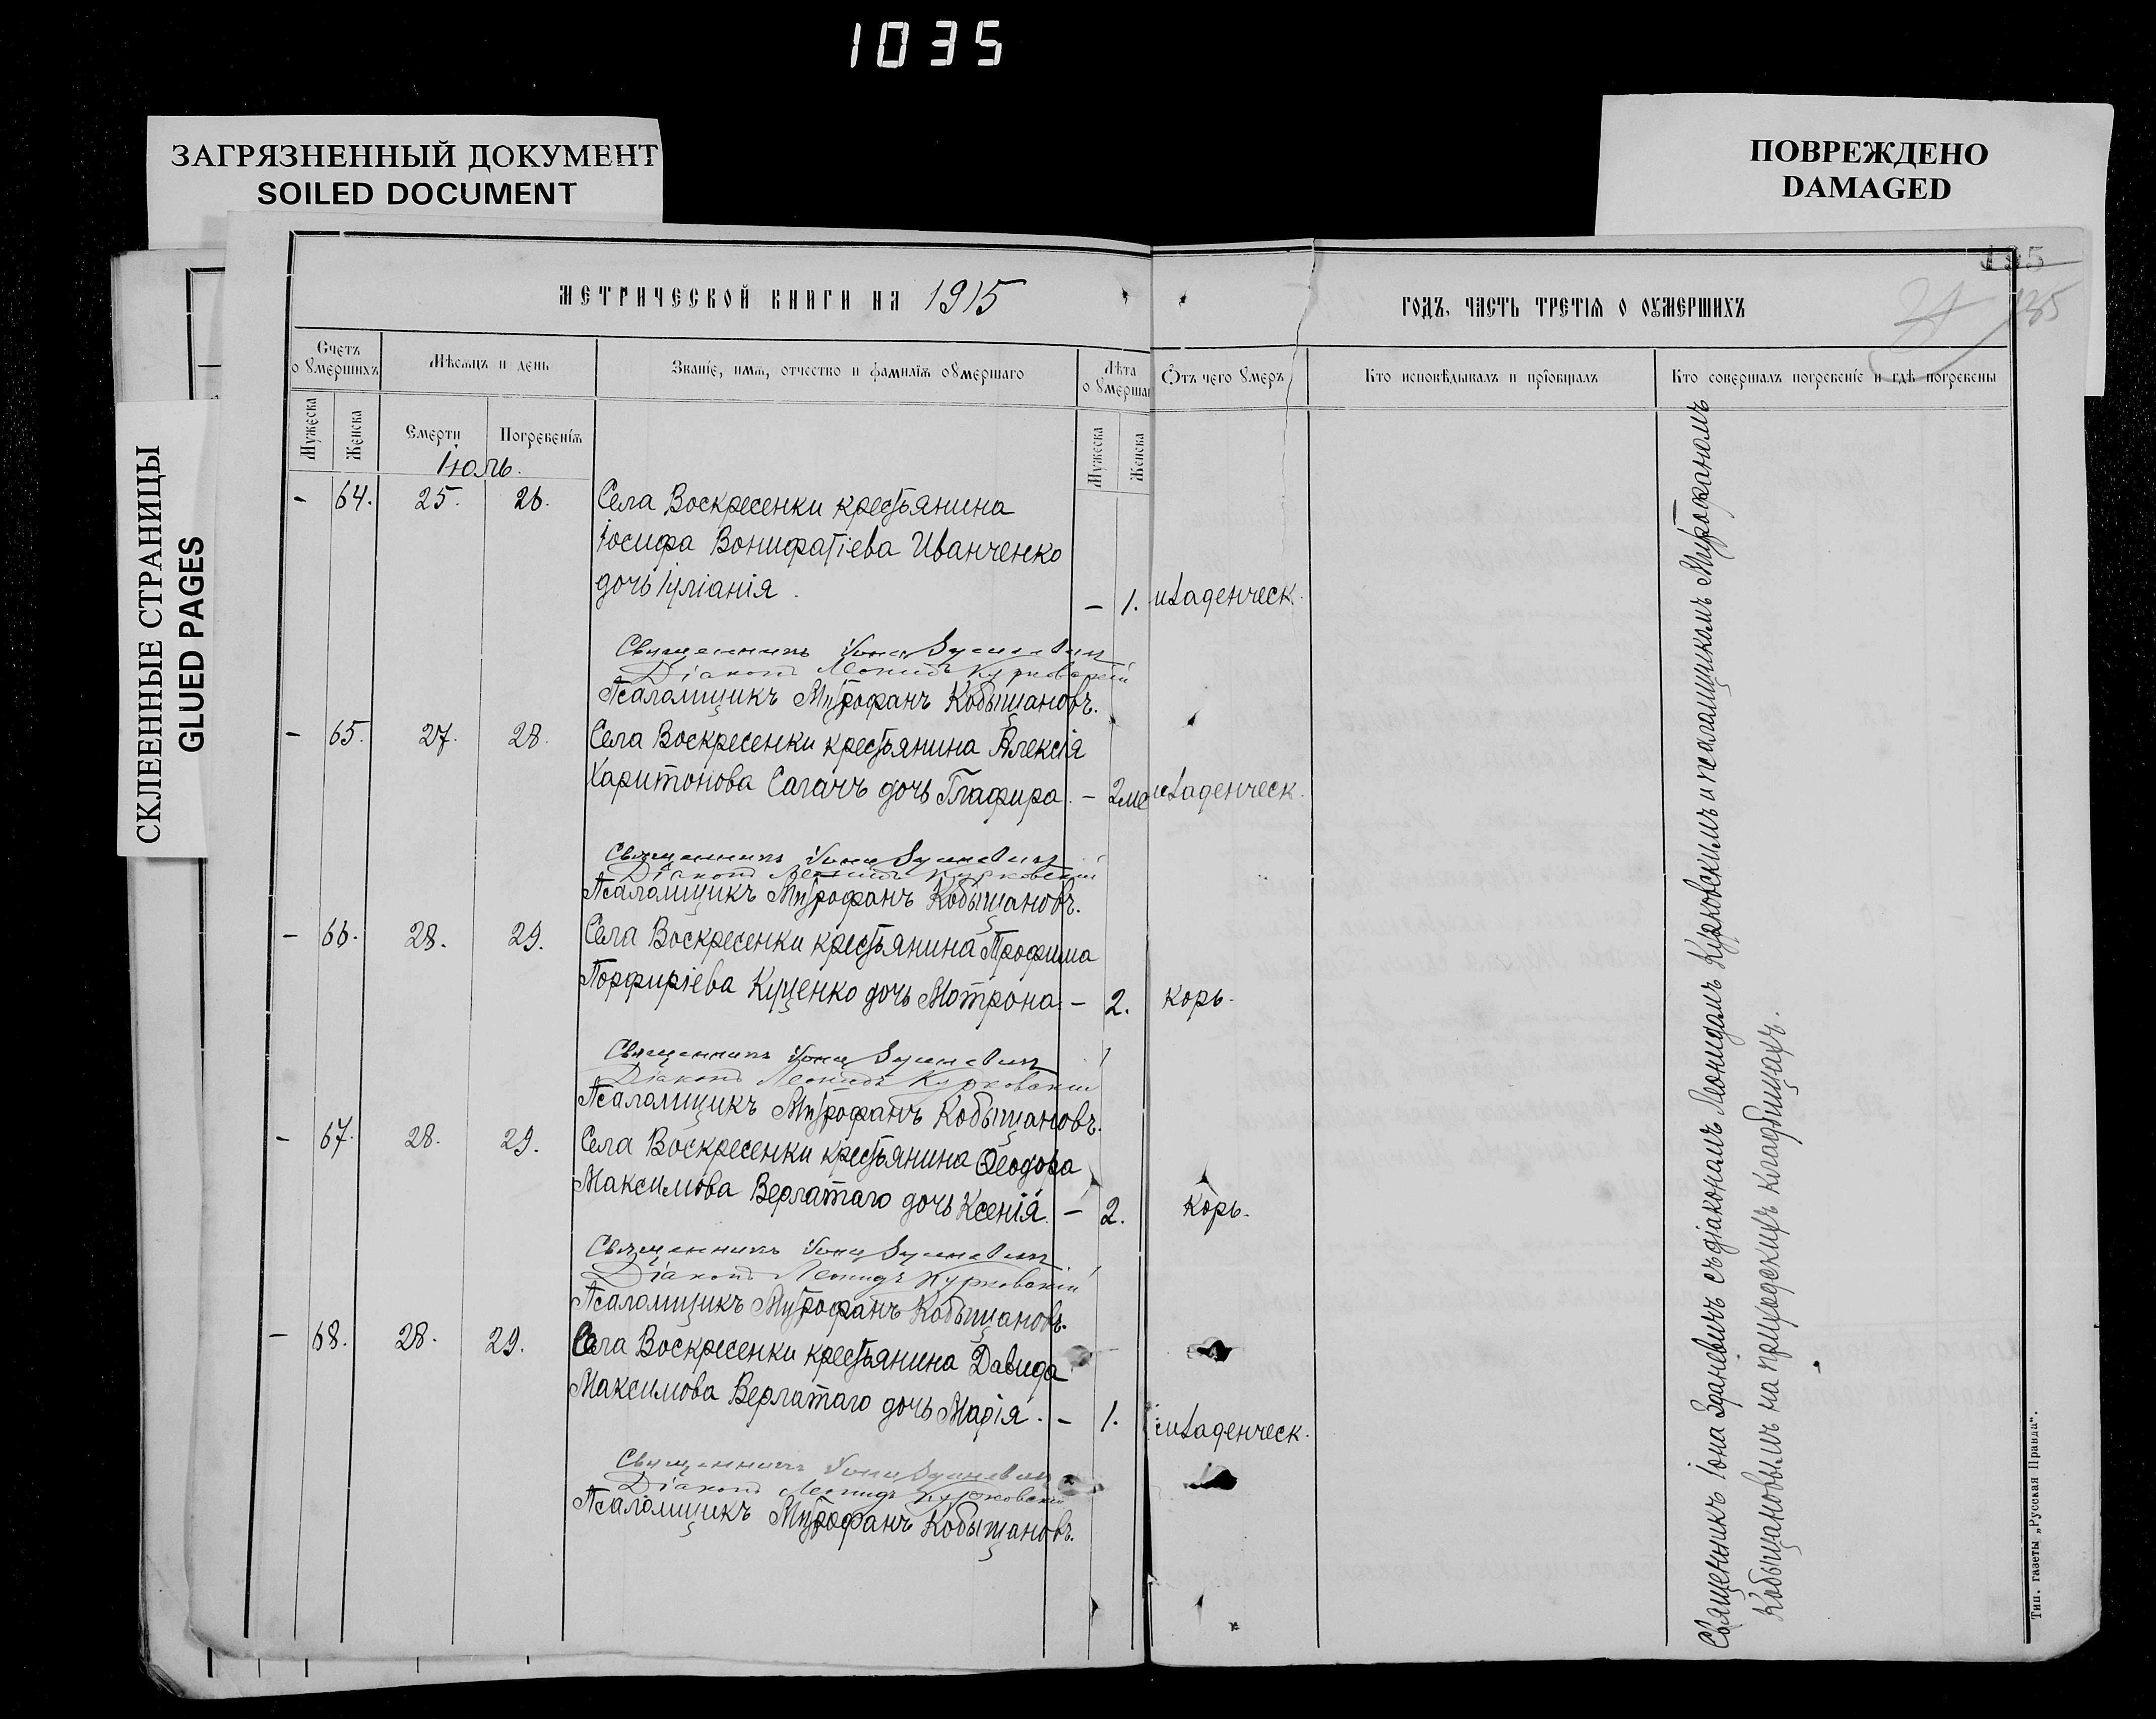 1035
ЗАГРЯЗНЕННЫЙ ДОКУМЕНТ
SOILED DOCUMENT
ПОВРЕЖДЕНО
DAMAGED
СКЛЕЕННЫЕ СТРАНИЦЫ
GLUED PAGES
135
МЕТРИЧЕСКОЙ КНИГИ НА 1915
ГОДЪ, ЧАСТЬ ТРЕТІѦ О ОУМЕРШИХЪ
Счетъ о умершихъ
Мѣсяцъ и день
Званіе, имѧ, отчество и фамиліѧ оумершаго
Лѣта оумерша
Отъ чего умеръ
Кто исповѣдывалъ и пріобщалъ
Кто совершалъ погребеніе и гдѣ погребены
Мужеска
Женска
Смерти
Погребеніѧ
Мужеска
Женска
Іюль.
- 64. 25. 26. Села Воскресенки крестьянина
Іосифа Вонифатіева Иванченко
дочь Іуліанія. - 1. младенческ.
Священникъ Іона Зраневичъ
Діаконъ Леонидъ Курковскій
Псаломщикъ Митрофанъ Кобыщановъ.
- 65. 27. 28. Села Воскресенки крестьянина Алексія
Харитонова Сагачъ дочь Глафира. - 2 ме младенческ.
Священникъ Іона Зраневичъ
Діаконъ Леонидъ Курковскій
Псаломщикъ Митрофанъ Кобыщановъ.
- 66. 28. 29. Села Воскресенки крестьянина Трофима
Порфиріева Куценко дочь Мотрона. - 2. корь.
Священникъ Іона Зраневичъ
Діаконъ Леонидъ Курковскій
Псаломщикъ Митрофанъ Кобыщановъ.
- 67. 28. 29. Села Воскресенки крестьянина Ѳеодора
Максимова Верлатаго дочь Ксенія. - 2. корь.
Священникъ Іона Зраневичъ
Діаконъ Леонидъ Курковскій
Псаломщикъ Митрофанъ Кобыщановъ.
- 68. 28. 29. Села Воскресенки крестьянина Давида
Максимова Верлатаго дочь Марія. - 1. младенческ.
Священникъ Іона Зраневичъ
Діаконъ Леонидъ Курковскій
Псаломщикъ Митрофанъ Кобыщановъ.
Священникъ Іона Зраневичъ съ діакономъ Леонидомъ Курковскимъ и псаломщикомъ Митрофаномъ
Кобыщановымъ на приходскихъ кладбищахъ.
Тип. газеты „Русская Правда".